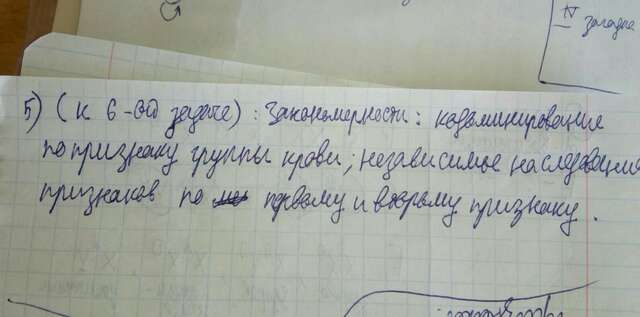 N задача
5) (к 6-ой задаче): Закономерности: кодоминирование
по признаку группы крови; независимое наследование
признаков по первому и второму признаку.